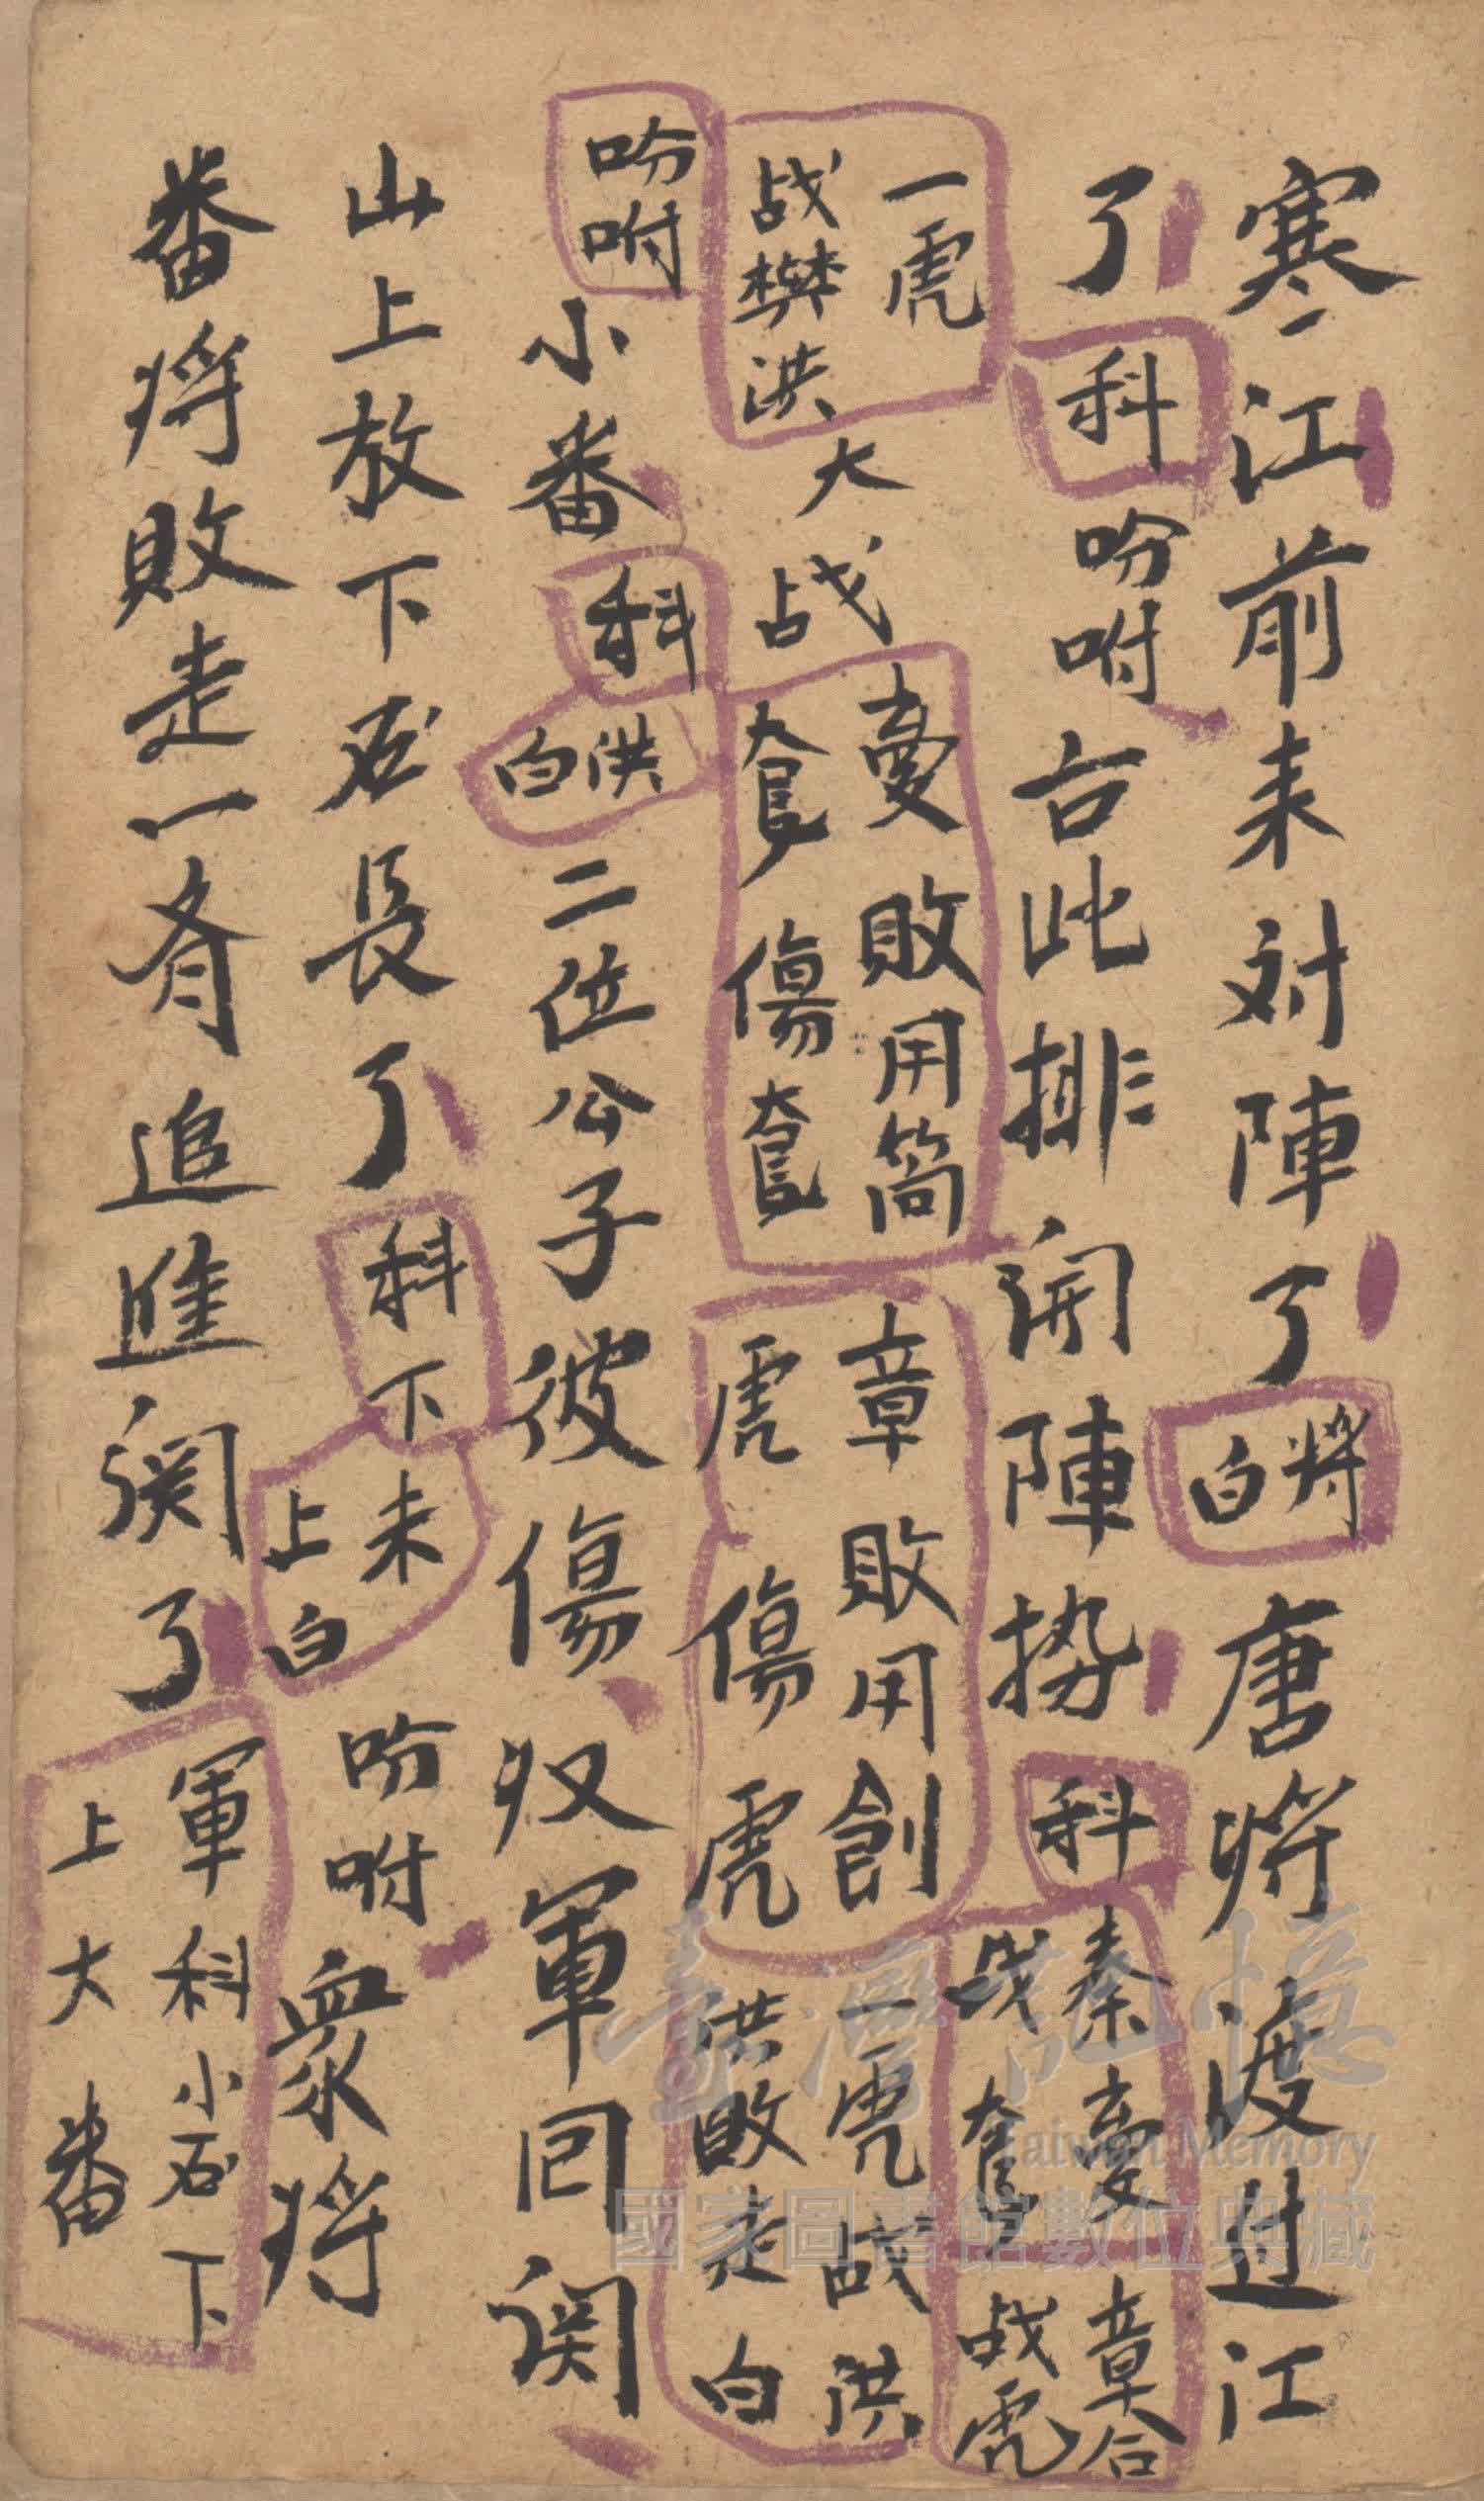 寒江前来対陣了將白唐将渡过江
了科吩咐台此排開陣势科秦夣战套章合战虎
一虎战樊洪大战夣敗用箭套傷套章敗用創虎傷虎一虎战洪洪敗走白
吩咐小番科洪白二位公子彼傷収軍囘関
山上放下石長了科下未上白吩咐衆将
番将敗走一斉追進関了軍科小石下上大番
臺灣記憶
Taiwan Memory
國家圖書館數位典藏